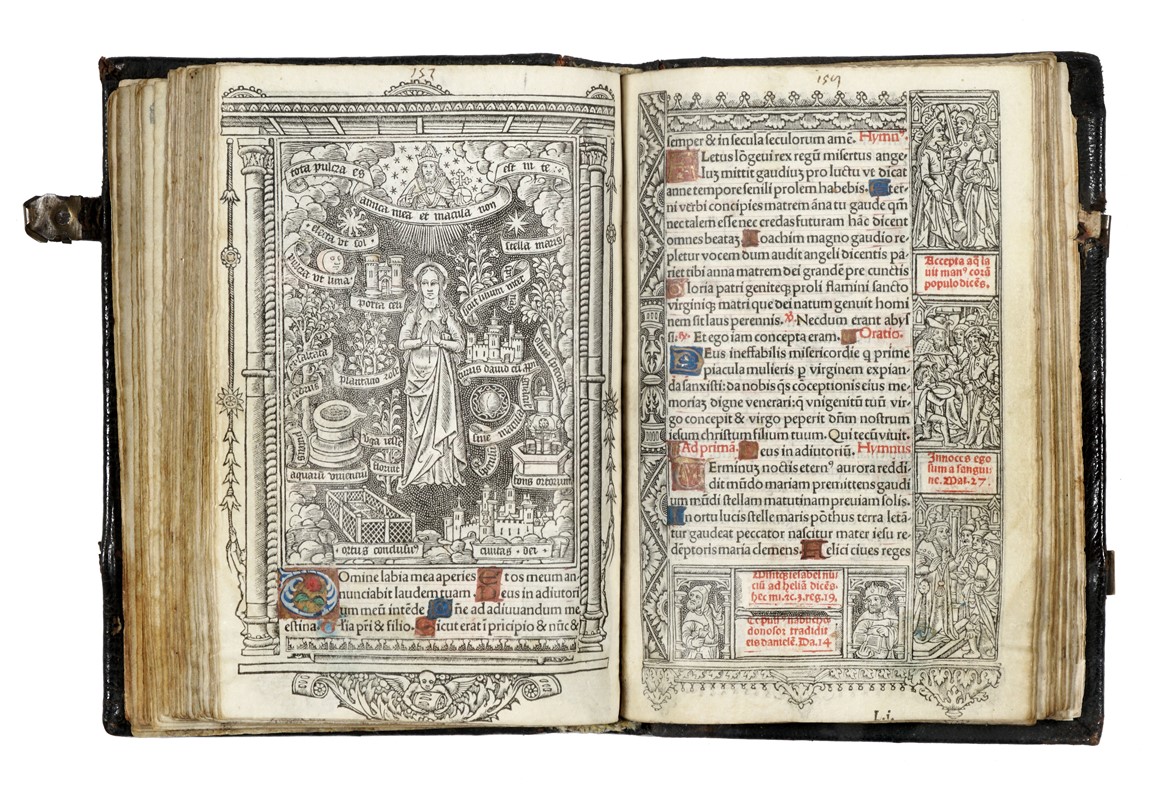 157
tota pulcra es
est in te
amica mea et macula non
electa vt sol
stella maris
pulcra vt luna
porta celi
sicut lilium inter
exaltata
cedrus
plantatio rose
turris dauid cū
oliua
speculū sine macula
puteus
aquarū viventiū
virga iesse
floruit
fons ortorum
ortus conclusus
ciuitas dei
Domine labia mea aperies Et os meum an-
nunciabit laudem tuam Deus in adiutori
um meū intēde Dñe ad adiuuandum me
festina. Glia pr̄i & filio. Sicut erat ī principio & nūc &
159
semper & in secula seculorum amē. Hymnꝰ.
Letus lōgeui rex regū misertus ange-
lus mittit gaudiuꝫ pro luctu vt dicat
anne tempore senili prolem habebis. Eter-
ni verbi concipies matrem āna tu gaude qm̄
nec talem esse nec credas futuram hāc dicent
omnes beataꝫ Ioachim magno gaudio re-
pletur vocem dum audit angeli dicentis pa-
riet tibi anna matrem dei grandē pre cunctis
Gloria patri genitoqꝫ proli flamini sancto
virginiqꝫ matri que dei natum genuit homi
nem sit laus perennis. ℣. Necdum erant abys
si: ℟. Et ego iam concepta eram. Oratio.
Deus ineffabilis misericordie q prime
piacula mulieris ꝑ virginem expian-
da sanxisti: da nobis qs cōceptionis eius me-
moriaꝫ digne venerari: q̄ vnigenitū tuū vir-
go concepit & virgo peperit dn̄m nostrum
iesum christum filium tuum. Qui tecū viuit.
Ad primā. Deus in adiutoriū. Hymnus
Erminuꝫ noctis eternꝰ aurora reddi-
dit mūdo mariam premittens gaudi
um mūdi stellam matutinam preuiam solis.
In ortu lucis stelle maris pōthus terra letā-
tur gaudeat peccator nascitur mater iesu re-
dēptoris maria clemens. Felici ciues reges
Accepta aq̄ la
uit manꝰ corā
populo dicēs.
Innocēs ego
sum a sangui-
ne. Mat. 27.
Misitqꝫ iesabel nū
ciū ad heliā dicēs.
hec mi. ꝛc. 3. reg. 19.
nabucho
donosor tradidit
eis danielē. Da. 14
L.i.